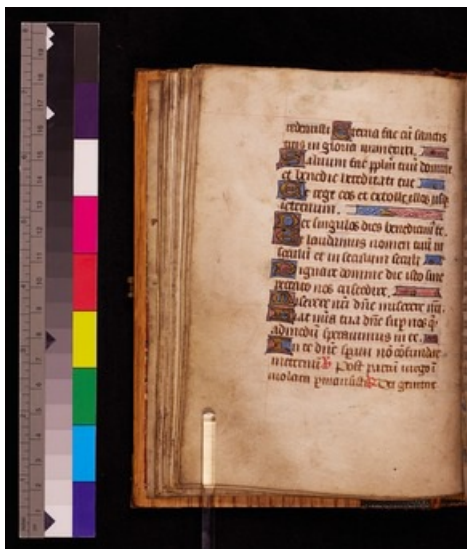 redemisti Eterna fac cū sanctis
tuis in gloria numerari.
Saluum fac pplm tuū domine
et benedic hereditati tue
Et rege eos et extolle illos usq
in eternum.
Per singulos dies benedicimꝰ te.
Et laudamus nomen tuū in
seculū et in seculum seculi
Dignare domine die isto sine
peccato nos custodire.
Miserere nr̄i dn̄e miserere nr̄i.
Fiat mīa tua dn̄e sup nos q̄
admodū sperauimus in te.
In te dn̄e speraui nō cōfundar
in eternū ℣ Post partū uirgo ī
uiolata pmansisti ℟ Dei genitrix